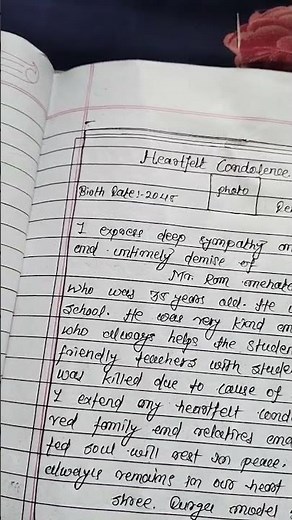 Heartfelt Condolence.
Birth Date:-2045
photo
De
I express deep sympathy on
end untimely demise of
Mr. Ram
who was 35 years old. He
School. He was very kind an
who always helps the studen
friendly teachers with studen
was killed due to cause of
I extend my heartfelt cond
red family end relatives end
ted soul will rest in peace.
always remains in our heart
Shree. Durga model